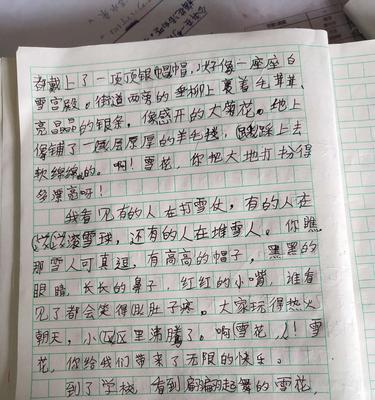 都戴上了一顶顶银帽帽,好像一座座白
雪宫殿。街道两旁的垂柳上裹着毛茸茸、
亮晶晶的银条,像盛开的大菊花。地上
像铺了一层厚厚的羊毛毯,踩上去
软绵绵的。啊!雪花,你把大地打扮得
多漂亮呀!
我看见有的人在打雪仗,有的人在
滚雪球,还有的人在堆雪人。你瞧
那雪人可真逗,有高高的帽子,黑黑的
眼睛,长长的鼻子,红红的小嘴,谁看
见了都会笑得肚子疼。大家玩得热火
朝天,小区里沸腾了。啊雪花!雪
花,你给我们带来了无限的快乐。
到了学校,看到翩翩起舞的雪花,